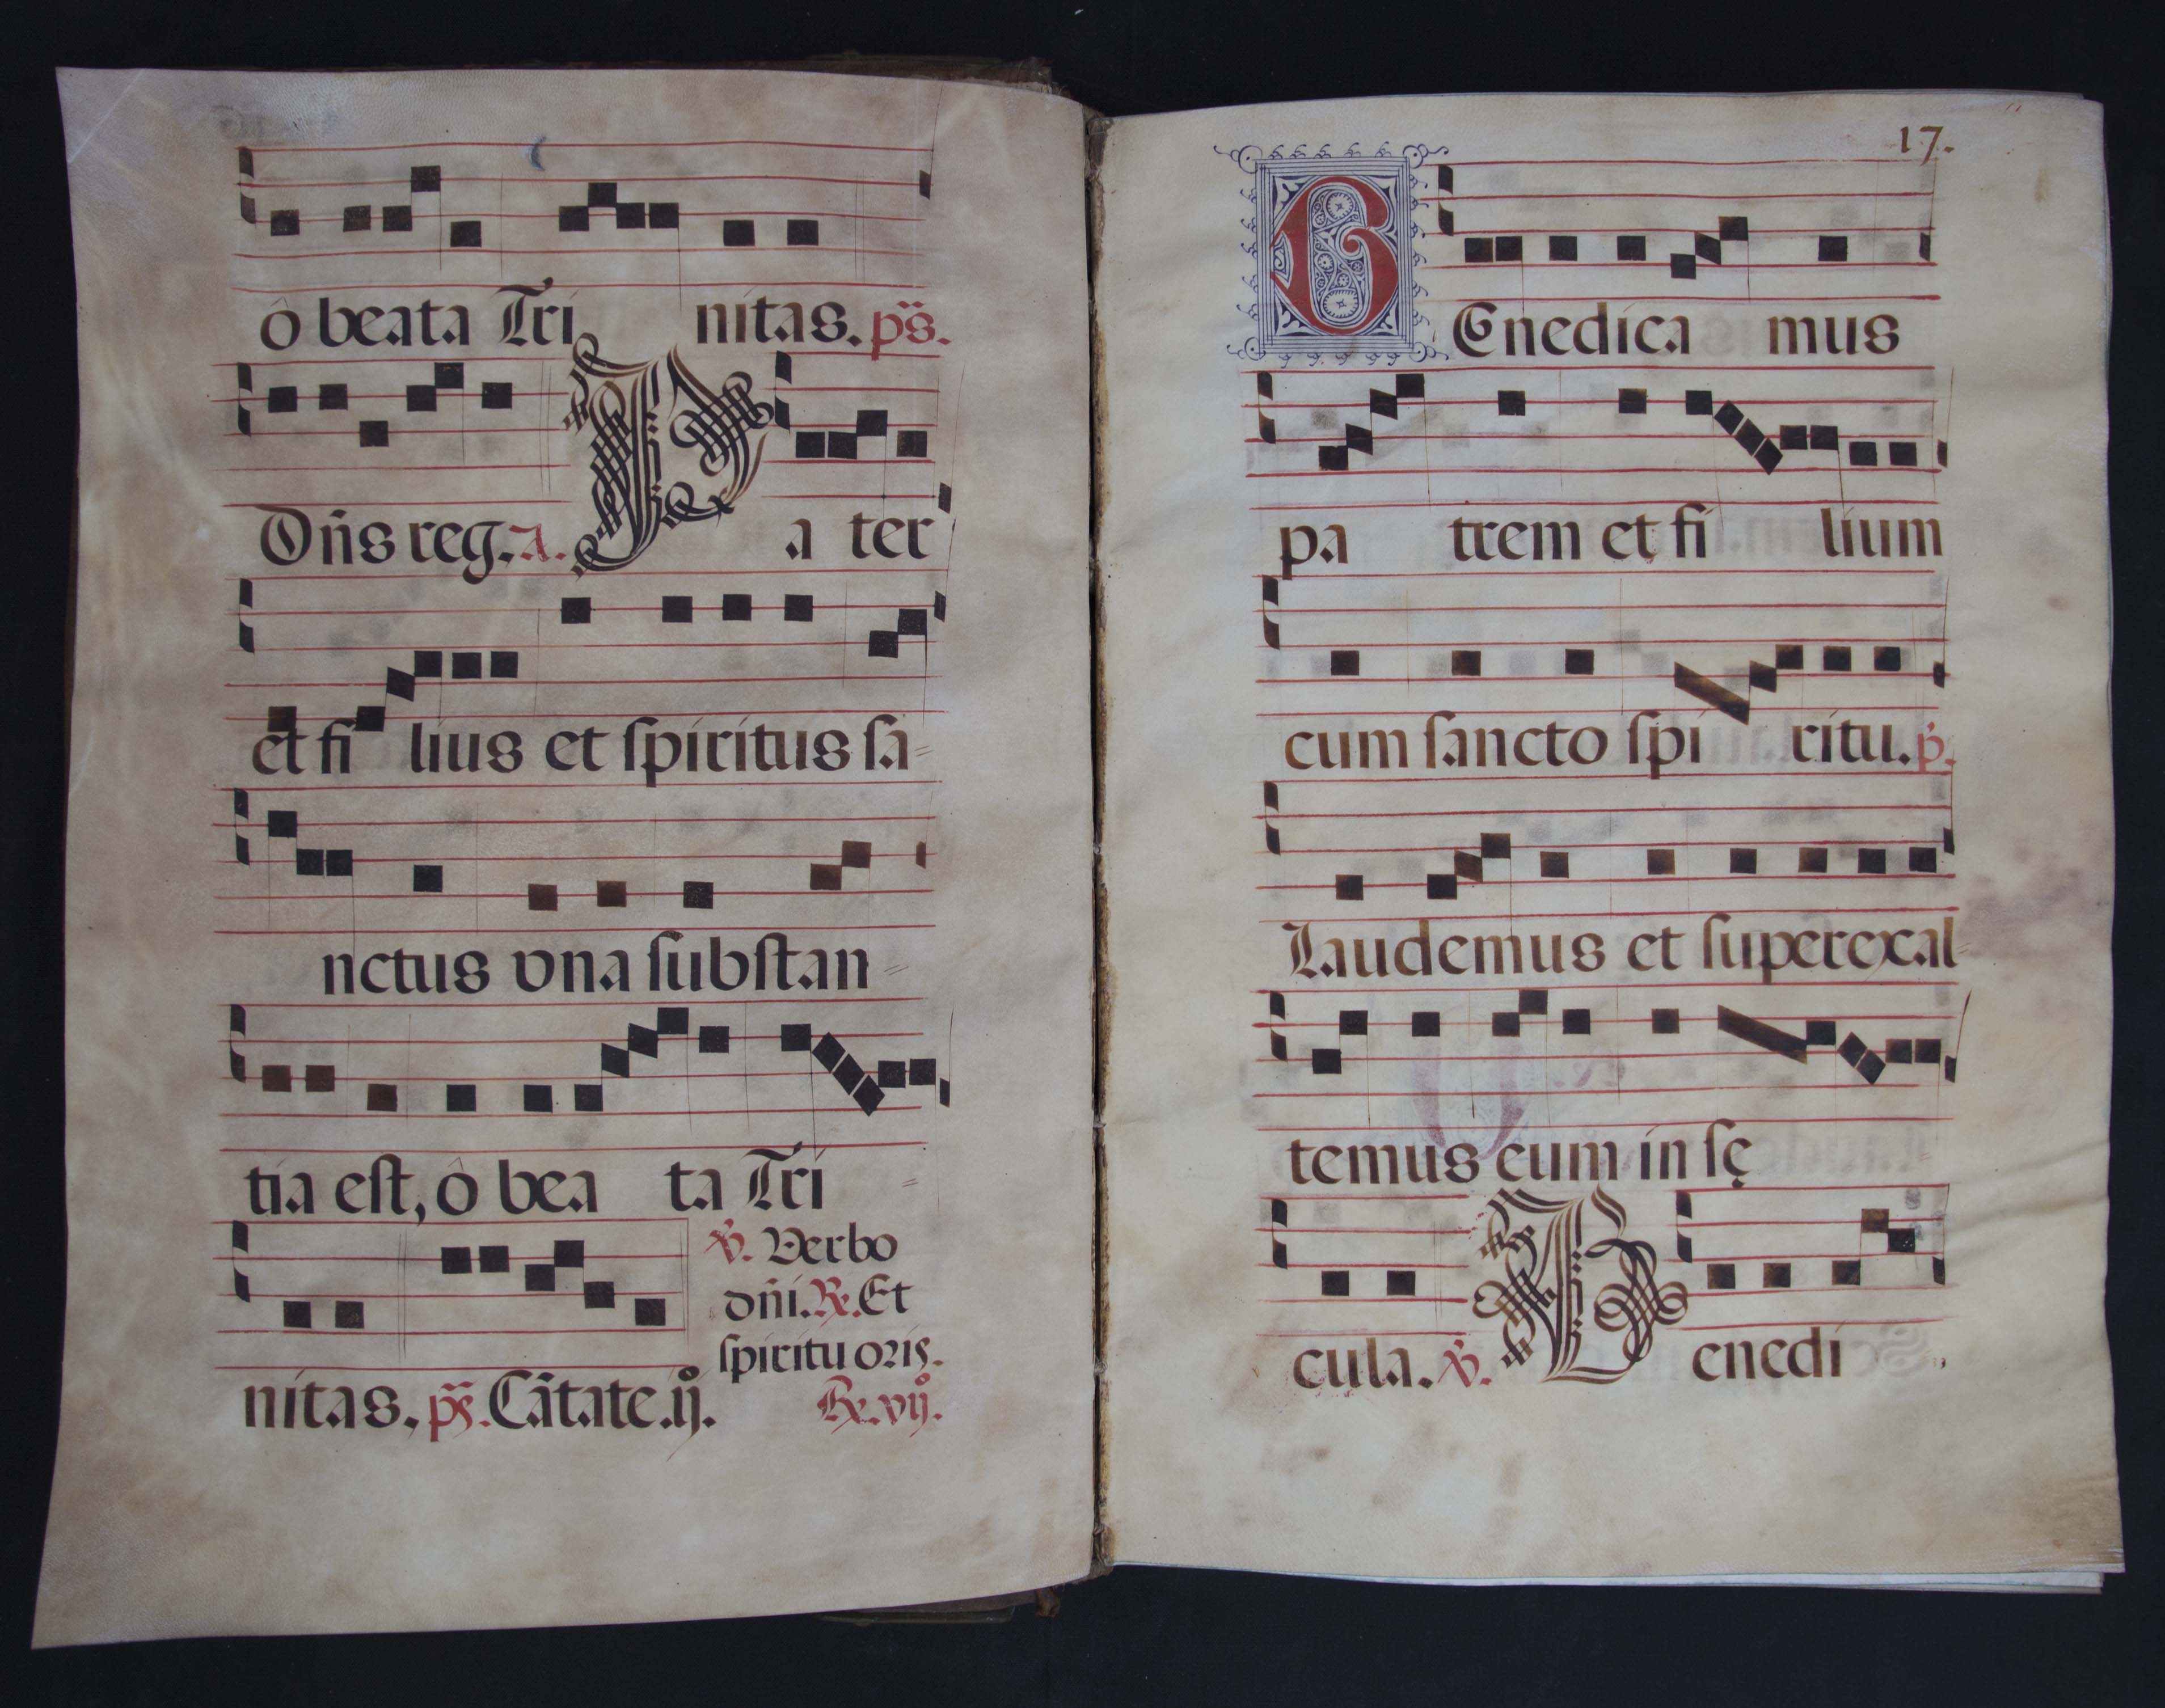 ô beata Tri nitas. ps.
Dñs reg. A. Pa ter
et fi lius et ſpiritus ſa=
nctus vna ſubſtan=
tia eſt, ô bea ta Tri=
nitas, ps. Cãtate.ij.
℣. Verbo
dñi. ℟. Et
ſpiritu oris.
℟. vij.
17.
BEnedica mus
pa trem et fi lium
cum ſancto ſpi ritu. p.
Laudemus et ſuperexal=
temus eum in ſę
cula. ℣. Benedi=